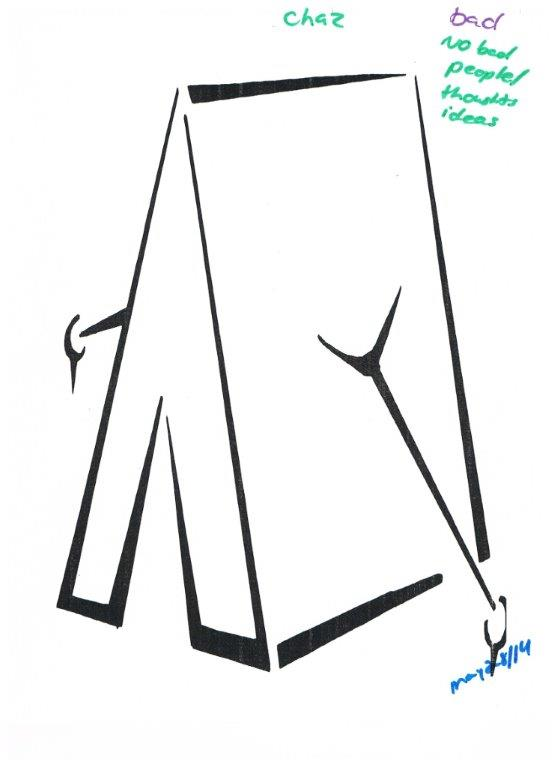 chaz
bad
No bad
people/
thoughts
ideas
may 28/14